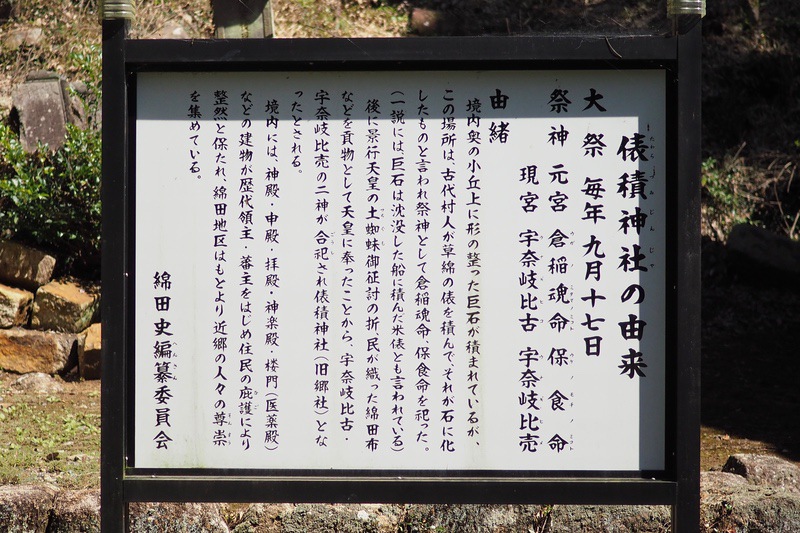 俵積神社の由来
大祭 毎年 九月十七日
祭神 元宮 倉稲魂命 保食命
現宮 宇奈岐比古 宇奈岐比売
由緒
境内奥の小丘上に形の整った巨石が積まれているが、
この場所は、古代村人が草綿の俵を積んで、それが石に化
したものと言われ祭神として倉稲魂命、保食命を祀った。
(一説には、巨石は沈没した船に積んだ米俵とも言われている)
後に景行天皇の土蜘蛛御征討の折、民が織った綿田布
などを貢物として天皇に奉ったことから、宇奈岐比古・
宇奈岐比売の二神が合祀され俵積神社(旧郷社)とな
ったとされる。
境内には、神殿・申殿・拝殿・神楽殿・楼門(医薬殿)
などの建物が歴代領主・藩主をはじめ住民の庇護により
整然と保たれ、綿田地区はもとより近郷の人々の尊崇
を集めている。
綿田史編纂委員会